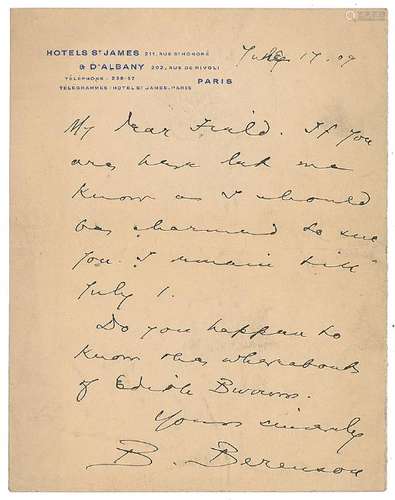 HOTELS ST JAMES 211, RUE ST HONORÉ
& D'ALBANY 202, RUE DE RIVOLI
TÉLÉPHONE: 238-52
PARIS
TELEGRAMMES: HOTEL ST JAMES-PARIS
17. 09
My dear Field. If you
are here let me
know as I should
be charmed to see
you. I remain till
July 1.
Do you happen to
know the whereabouts
of Edith Burrows.
Yours sincerely
B. Berenson